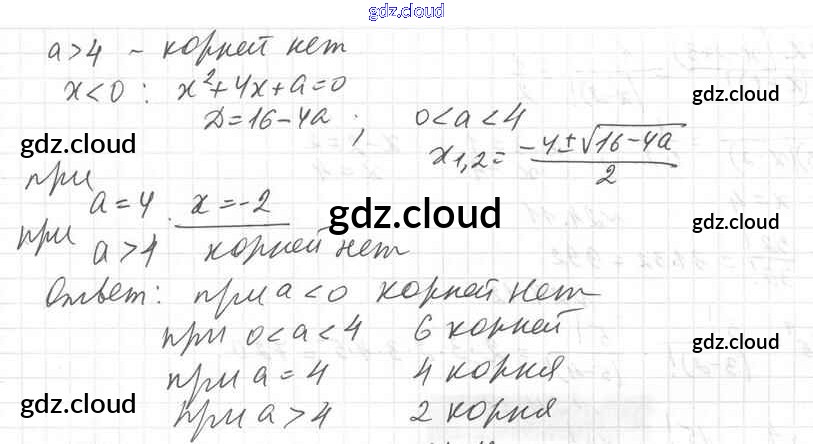 gdz.cloud
a>4 – корней нет
x<0: x²+4x+a=0
gdz.cloud
D=16-4a; 0<a<4
gdz.cloud
x₁,₂= (-4±√16-4a)/2
при a=4. x=-2
gdz.cloud
gdz.cloud
при a>4 корней нет
Ответ: при a<0 корней нет
при 0<a<4 6 корней
gdz.cloud
при a=4 4 корня
gdz.cloud
при a>4 2 корня